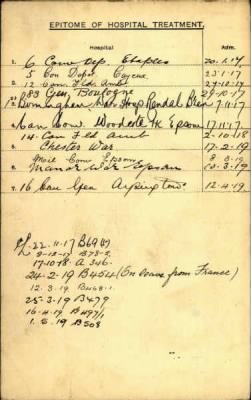 EPITOME OF HOSPITAL TREATMENT.
Hospital Adm.
1. 6 Conv Dep. Etaples 20.1.17
5 Con Depot Cayeux
2. 12 Can. Fld Amb 27-10-17
83 Gen Boulogne 29.10.17
Birmingham War Hosp Rendal 7.11.17
4. Can Conv. Woodcote Pk Epsom 17.11.17
14. Can Fld amb 2-10-18
5. Chester War 17-2-19
Mil Conv Epsom
6. Manor War Epsom 10.3.19
7. 16 Can Gen Orpington 12.4.19
22.11.17
17.10.18 A 346.
24-2-19 B454 (On leave from France)
12.3.19 B468.1
25-3-19 B479
16.4.19 B497/1
1.5.19 B508